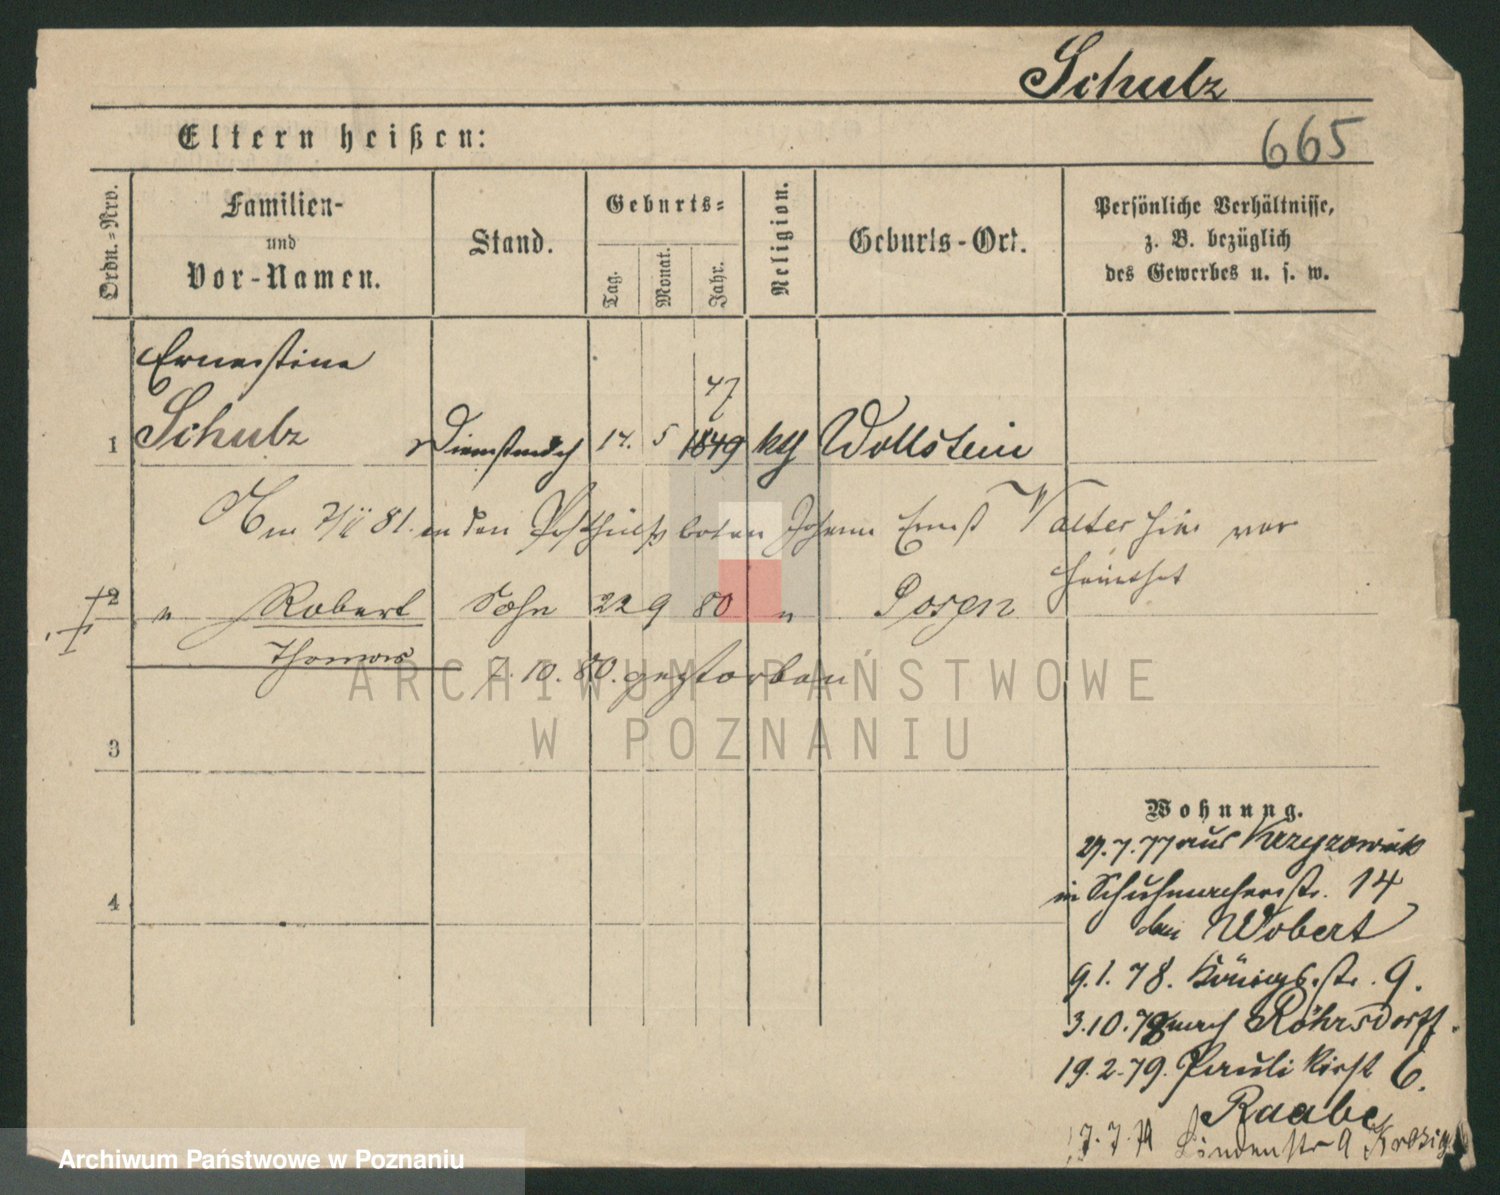 Schulz
665
Eltern heißen:
Ordn.-Nro.
Familien-
und
Vor-Namen.
Stand.
Geburts-
Tag.
Monat.
Jahr.
Religion.
Geburts-Ort.
Persönliche Verhältnisse,
z. B. bezüglich
des Gewerbes u. s. w.
Ernestine
47
1 Schulz Dienstmdch 14. 5 1849 kth Wollstein
Am 7/II 81. an den Posthülfsboten Johann Ernst Walter hier ver
heirathet
2 " Robert Sohn 22 9 80 " Posen
Thomas 7. 10. 80. gestorben
3
4
Wohnung.
27. 7. 77 aus Krzyzownik
in Schuhmacherstr. 14
bei Wobert
9. 1. 78. Königsstr. 9.
3. 10. 78 nach Röhrsdorff.
19. 2. 79. Paulikirchst 6.
Raabe
7. 79 Lindenstr 9
ARCHIWUM PAŃSTWOWE
W POZNANIU
Archiwum Państwowe w Poznaniu